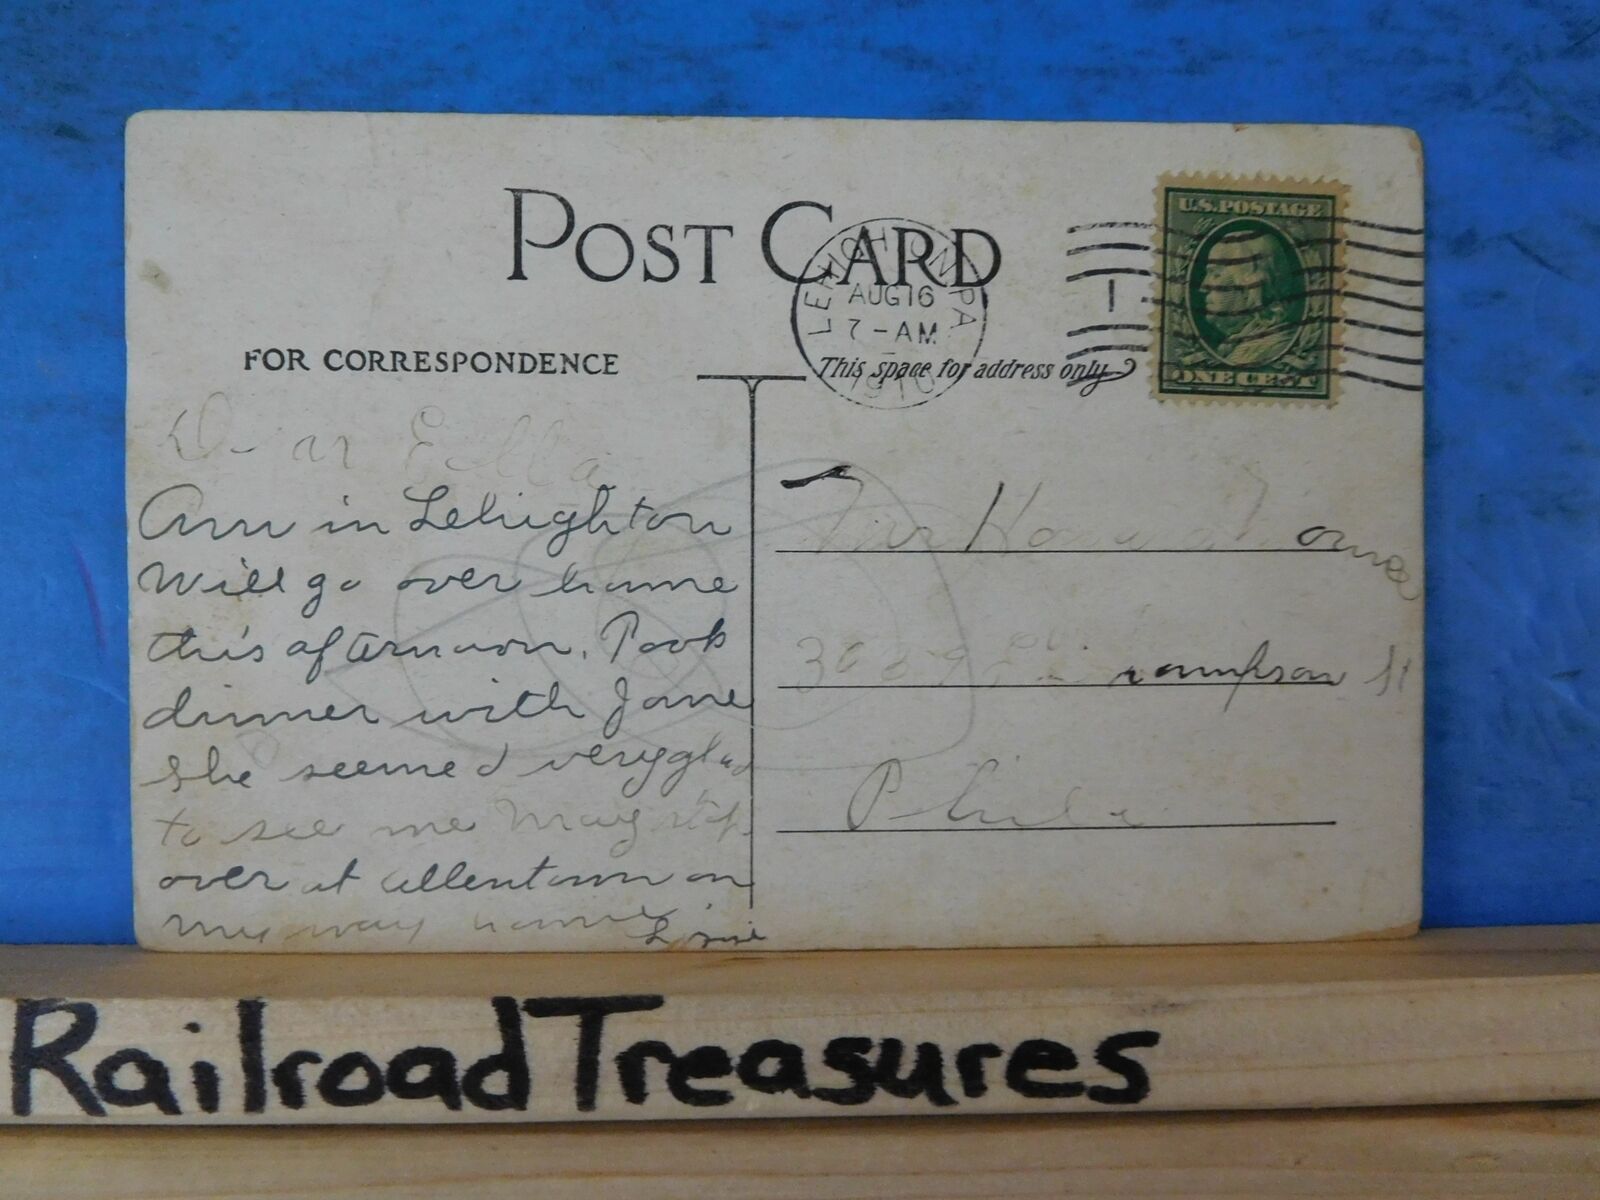 POST CARD
LEHIGHTON PA
AUG 16
7-AM
1910
1
U.S. POSTAGE
ONE CENT
FOR CORRESPONDENCE
This space for address only
Dear Ella
Am in Lehighton
Will go over home
this afternoon. Took
dinner with Jane
she seemed very glad
to see me May stop
over at Allentown on
my way home
Howard
Thompson St
Phila
RailroadTreasures